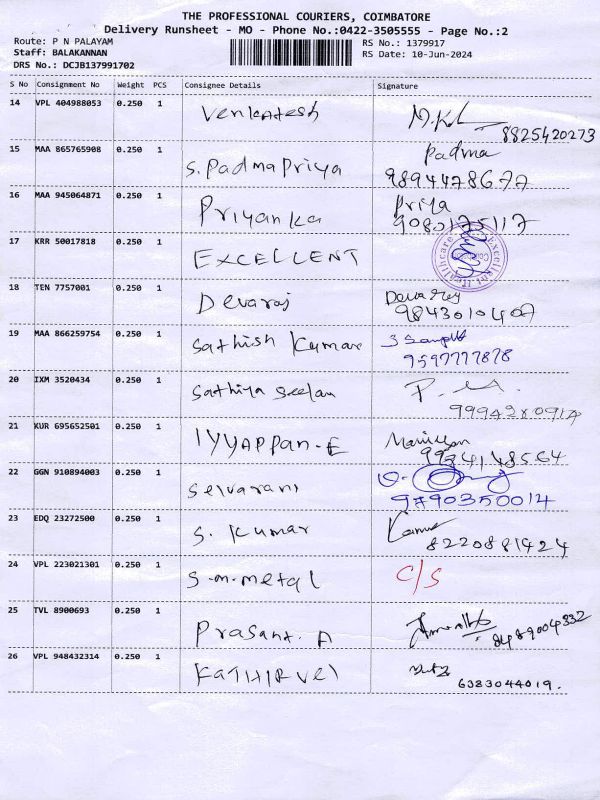 THE PROFESSIONAL COURIERS, COIMBATORE
Delivery Runsheet - MO - Phone No.:0422-3505555 - Page No.:2
Route: P N PALAYAM
RS No.: 1379917
Staff: BALAKANNAN
RS Date: 10-Jun-2024
DRS No.: DCJB137991702
S No Consignment No Weight PCS Consignee Details Signature
14 VPL 404988053 0.250 1 Venkatesh
8825420273
15 MAA 865765908 0.250 1 S. Padma Priya Padma
9894478677
16 MAA 945064871 0.250 1 Priyanka Priya
9080175117
17 KRR 50017818 0.250 1 EXCELLENT
18 TEN 7757001 0.250 1 Devaraj
19 MAA 866259754 0.250 1 Sathish Kumar
9597777878
20 IXM 3520434 0.250 1 Sathiya Seelan
21 KUR 695652501 0.250 1 IYYAPPAN-E
9994148564
22 GGN 910894003 0.250 1 Selvarani
9790350014
23 EDQ 23272500 0.250 1 S. Kumar
8220881424
24 VPL 223021301 0.250 1 S.M.Metal C/S
25 TVL 8900693 0.250 1 Prasant. A
8489004332
26 VPL 948432314 0.250 1 KATHIRVEL
6383044019.